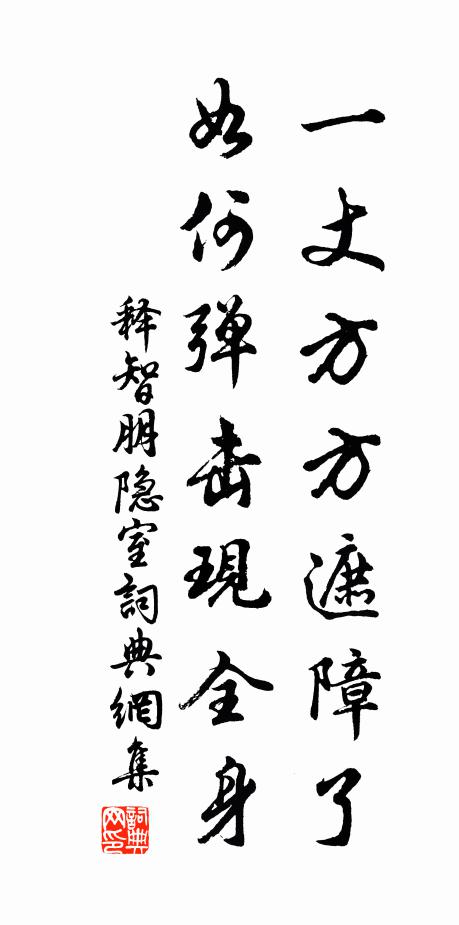 一丈方方遮障了
如何弹击現全身
释智朋隐室詞典網集
詞典
网印